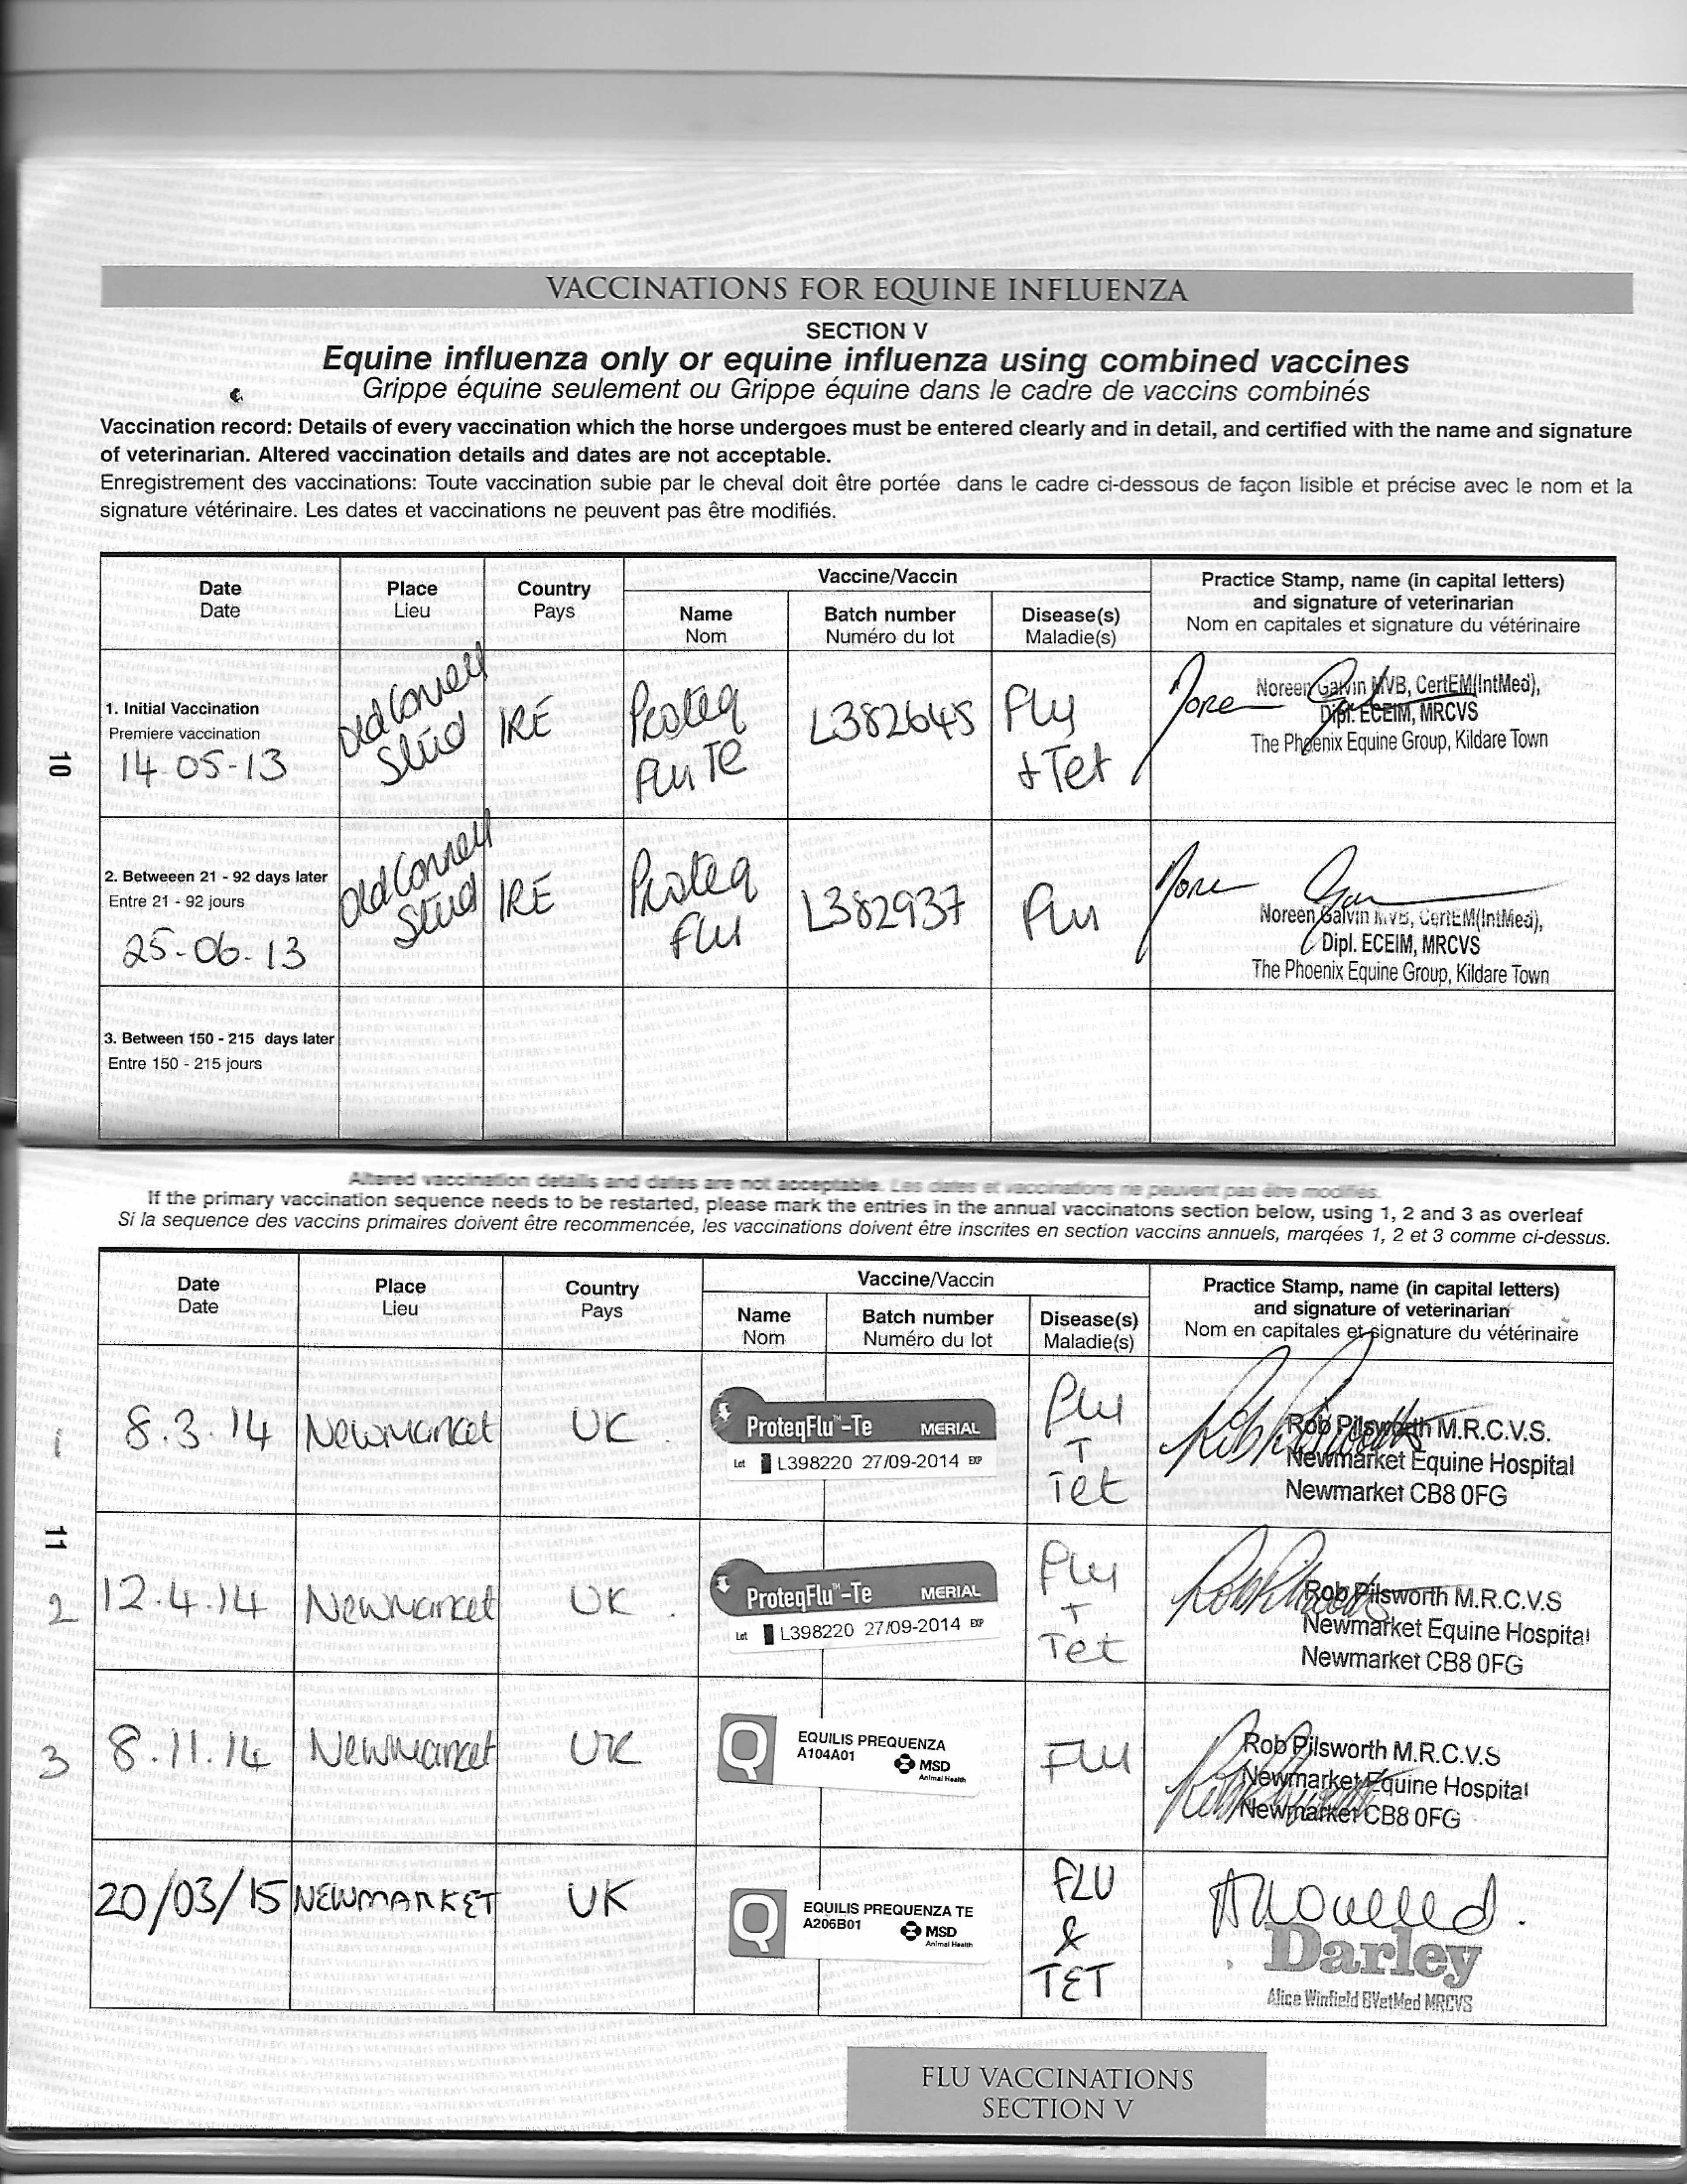 VACCINATIONS FOR EQUINE INFLUENZA
SECTION V
Equine influenza only or equine influenza using combined vaccines
Grippe équine seulement ou Grippe équine dans le cadre de vaccins combinés
Vaccination record: Details of every vaccination which the horse undergoes must be entered clearly and in detail, and certified with the name and signature
of veterinarian. Altered vaccination details and dates are not acceptable.
Enregistrement des vaccinations: Toute vaccination subie par le cheval doit être portée dans le cadre ci-dessous de façon lisible et précise avec le nom et la
signature vétérinaire. Les dates et vaccinations ne peuvent pas être modifiés.
Date
Date
Place
Lieu
Country
Pays
Vaccine/Vaccin
Name
Nom
Batch number
Numéro du lot
Disease(s)
Maladie(s)
Practice Stamp, name (in capital letters)
and signature of veterinarian
Nom en capitales et signature du vétérinaire
1. Initial Vaccination
Premiere vaccination
14.05-13
Old Connell
Stud
IRE
Proteq
Flu TE
L382645
Flu
+ Tet
Noreen Galvin MVB, CertEM(IntMed),
Dipl. ECEIM, MRCVS
The Phoenix Equine Group, Kildare Town
10
2. Betweeen 21 - 92 days later
Entre 21 - 92 jours
25-06-13
Old Connell
Stud
IRE
Proteq
Flu
L382937
Flu
Noreen Galvin MVB, CertEM(IntMed),
Dipl. ECEIM, MRCVS
The Phoenix Equine Group, Kildare Town
3. Between 150 - 215 days later
Entre 150 - 215 jours
Altered vaccination details and dates are not acceptable. Les dates et vaccinations ne peuvent pas être modifiés.
If the primary vaccination sequence needs to be restarted, please mark the entries in the annual vaccinatons section below, using 1, 2 and 3 as overleaf
Si la sequence des vaccins primaires doivent être recommencée, les vaccinations doivent être inscrites en section vaccins annuels, marqées 1, 2 et 3 comme ci-dessus.
Date
Date
Place
Lieu
Country
Pays
Vaccine/Vaccin
Name
Nom
Batch number
Numéro du lot
Disease(s)
Maladie(s)
Practice Stamp, name (in capital letters)
and signature of veterinarian
Nom en capitales et signature du vétérinaire
1
8.3.14
Newmarket
UK.
ProteqFlu™-Te MERIAL
Lot L398220 27/09-2014 EXP
Flu
+
Tet
Rob Pilsworth M.R.C.V.S.
Newmarket Equine Hospital
Newmarket CB8 0FG
11
2
12.4.14
Newmarket
UK.
ProteqFlu™-Te MERIAL
Lot L398220 27/09-2014 EXP
Flu
+
Tet
Rob Pilsworth M.R.C.V.S
Newmarket Equine Hospital
Newmarket CB8 0FG
3
8.11.14
Newmarket
UK
Q
EQUILIS PREQUENZA
A104A01
MSD
Animal Health
Flu
Rob Pilsworth M.R.C.V.S
Newmarket Equine Hospital
Newmarket CB8 0FG
20/03/15
NEWMARKET
UK
Q
EQUILIS PREQUENZA TE
A206B01
MSD
Animal Health
FLU
&
TET
Darley
Alice Winfield BVetMed MRCVS
FLU VACCINATIONS
SECTION V